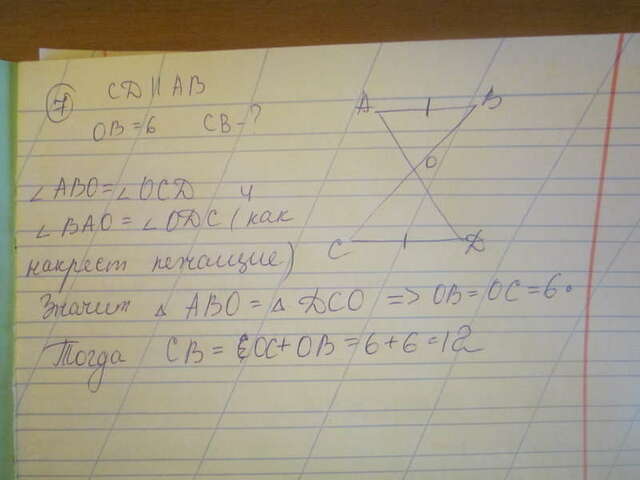 7 СД || АВ
ОВ = 6 СВ - ?
А В
О
С Д
∠ АВО = ∠ ОСД и
∠ ВАО = ∠ ОДС (как
накрест лежащие)
Значит △ АВО = △ ДСО => ОВ = ОС = 6.
Тогда СВ = ОС + ОВ = 6 + 6 = 12